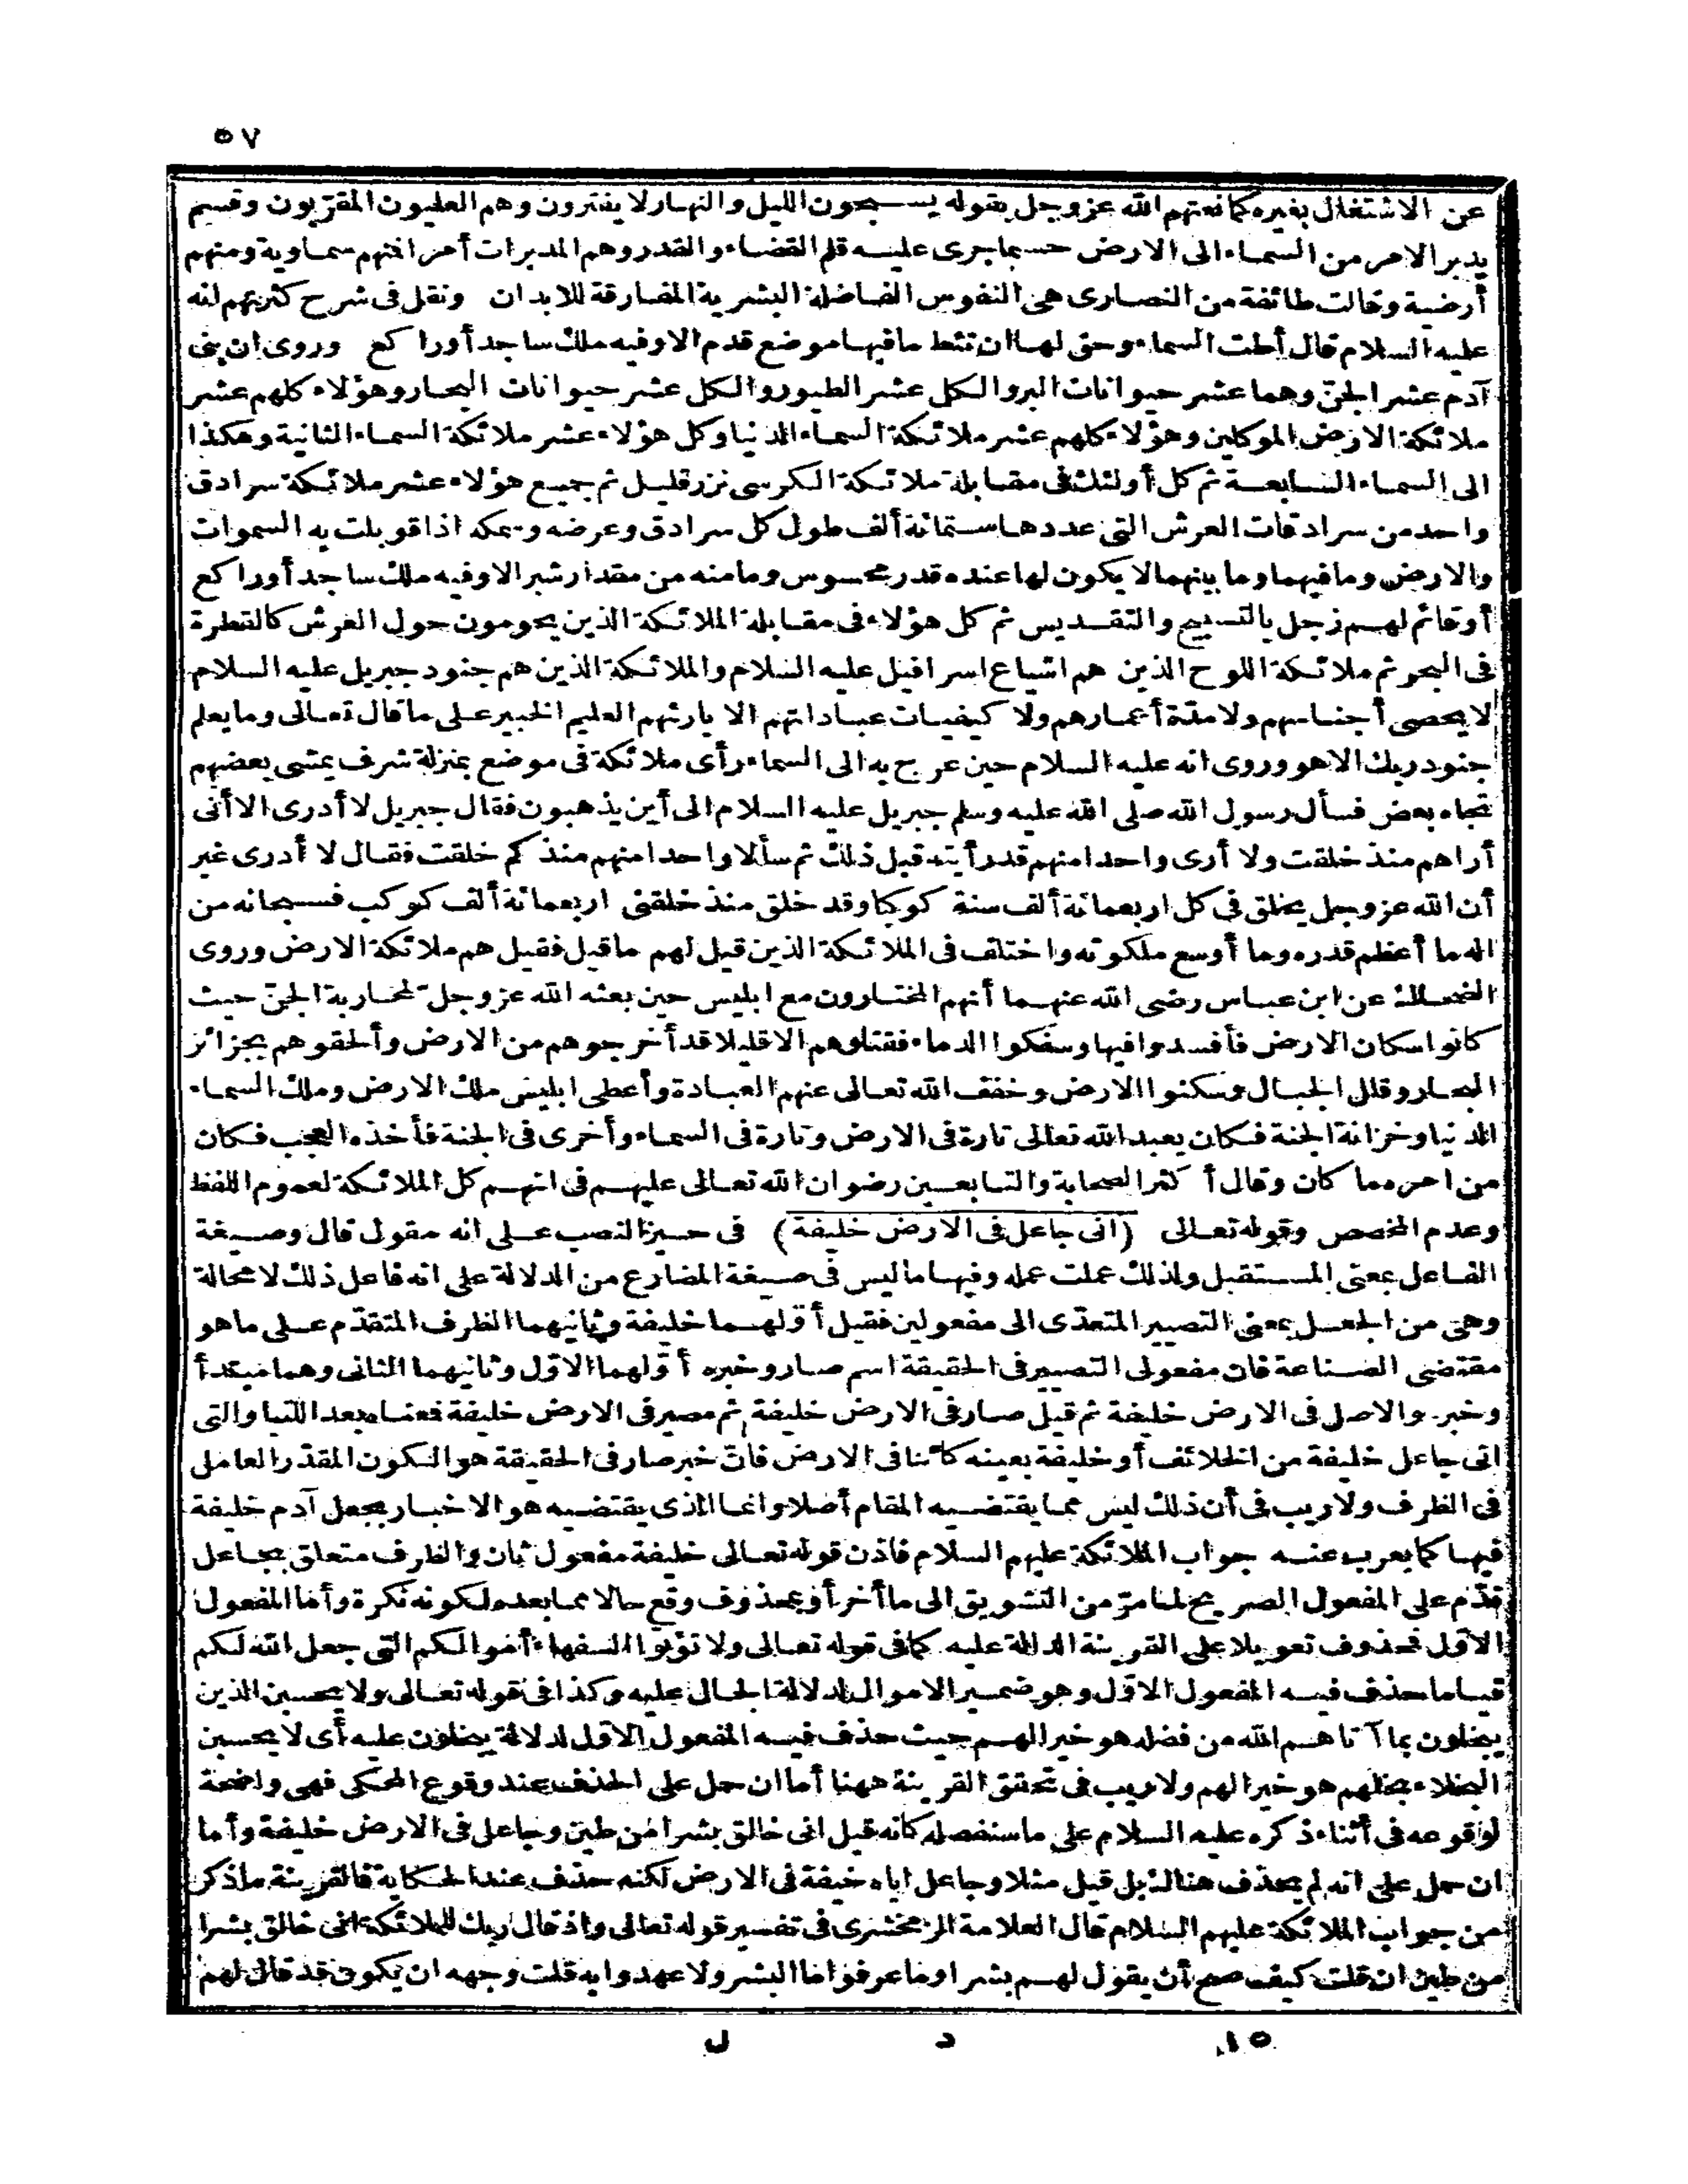 ٥٧
عن الاشتغال بغيره كما نعتهم الله عز وجل بقوله يسبحون الليل والنهار لا يفترون وهم العليون المقربون وقسم
يدبر الامر من السماء الى الارض حسبما جرى عليه قلم القضاء والقدر وهم المدبرات أمرا فمنهم سماوية ومنهم
أرضية وقالت طائفة من النصارى هى النفوس الفاضلة البشرية المفارقة للابدان ونقل فى شرح كثرتهم انه
عليه السلام قال أطت السماء وحق لها ان تئط ما فيها موضع قدم الا وفيه ملك ساجد أو راكع وروى ان بنى
آدم عشر الجنّ وهما عشر حيوانات البر والكل عشر الطيور والكل عشر حيوانات البحار وهؤلاء كلهم عشر
ملائكة الارض الموكلين وهؤلاء كلهم عشر ملائكة السماء الدنيا وكل هؤلاء عشر ملائكة السماء الثانية وهكذا
الى السماء السابعة ثم كل أولئك فى مقابلة ملائكة الكرسى نزر قليل ثم جميع هؤلاء عشر ملائكة سرادق
واحد من سرادقات العرش التى عددها ستمائة ألف طول كل سرادق وعرضه وسمكه اذا قوبلت به السموات
والارض وما فيهما وما بينهما لا يكون لها عنده قدر محسوس وما منه من مقدار شبر الا وفيه ملك ساجد أو راكع
أو قائم لهم زجل بالتسبيح والتقديس ثم كل هؤلاء فى مقابلة الملائكة الذين يحومون حول العرش كالقطرة
فى البحر ثم ملائكة اللوح الذين هم اشياع اسرافيل عليه السلام والملائكة الذين هم جنود جبريل عليه السلام
لا يحصى أجناسهم ولا مدّة أعمارهم ولا كيفيات عباداتهم الا بارئهم العليم الخبير على ما قال تعالى وما يعلم
جنود ربك الا هو وروى انه عليه السلام حين عرج به الى السماء رأى ملائكة فى موضع بمنزلة شرف يمشى بعضهم
تجاه بعض فسأل رسول الله صلى الله عليه وسلم جبريل عليه السلام الى أين يذهبون فقال جبريل لا أدرى الا أنى
أراهم منذ خلقت ولا أرى واحدا منهم قد رأيته قبل ذلك ثم سألا واحدا منهم منذ كم خلقت فقال لا أدرى غير
أن الله عز وجل يخلق فى كل اربعمائة ألف سنة كوكبا وقد خلق منذ خلقنى اربعمائة ألف كوكب فسبحانه من
اله ما أعظم قدره وما أوسع ملكوته واختلف فى الملائكة الذين قيل لهم ما قيل فقيل هم ملائكة الارض وروى
الضحاك عن ابن عباس رضى الله عنهما أنهم المختارون مع ابليس حين بعثه الله عز وجل لمحاربة الجنّ حيث
كانوا سكان الارض فأفسدوا فيها وسفكوا الدماء فقتلوهم الا قليلا قد أخرجوهم من الارض وألحقوهم بجزائر
البحار وقلل الجبال وسكنوا الارض وخفف الله تعالى عنهم العبادة وأعطى ابليس ملك الارض وملك السماء
الدنيا وخزانة الجنة فكان يعبد الله تعالى تارة فى الارض وتارة فى السماء وأخرى فى الجنة فأخذه العجب فكان
من امره ما كان وقال أكثر الصحابة والتابعين رضوان الله تعالى عليهم فى انهم كل الملائكة لعموم اللفظ
وعدم المخصص وقوله تعالى (انى جاعل فى الارض خليفة) فى حيز النصب على انه مقول قال وصيغة
الفاعل بمعنى المستقبل ولذلك عملت عمله وفيها ما ليس فى صيغة المضارع من الدلالة على انه فاعل ذلك لا محالة
وهى من الجعل بمعنى التصيير المتعدّى الى مفعولين فقيل أوّلهما خليفة وثانيهما الظرف المتقدّم على ما هو
مقتضى الصناعة فان مفعولى التصيير فى الحقيقة اسم صار وخبره أوّلهما الاوّل وثانيهما الثانى وهما مبتدأ
وخبر والاصل فى الارض خليفة ثم قيل صار فى الارض خليفة ثم مصير فى الارض خليفة فمعناه بعد اللتيا والتى
انى جاعل خليفة من الخلائف أو خليفة بعينه كائنا فى الارض فانّ خبر صار فى الحقيقة هو الكون المقدّر العامل
فى الظرف ولا ريب فى أن ذلك ليس مما يقتضيه المقام أصلا وانما الذى يقتضيه هو الاخبار بجعل آدم خليفة
فيها كما يعرب عنه جواب الملائكة عليهم السلام فاذن قوله تعالى خليفة مفعول ثان والظرف متعلق بجاعل
قدّم على المفعول الصريح لما مرّ من التشويق الى ما أخر أو بمحذوف وقع حالا مما بعده لكونه نكرة وأما المفعول
الاوّل فمحذوف تعويلا على القرينة الدالة عليه كما فى قوله تعالى ولا تؤتوا السفهاء أموالكم التى جعل الله لكم
قياما حذف فيه المفعول الاوّل وهو ضمير الاموال لدلالة الحال عليه وكذا فى قوله تعالى ولا يحسبن الذين
يبخلون بما آتاهم الله من فضله هو خيرا لهم حيث حذف فيه المفعول الاوّل لدلالة يبخلون عليه أى لا يحسبن
البخلاء بخلهم هو خيرا لهم ولا ريب فى تحقق القرينة ههنا أما ان حمل على الحذف عند وقوع المحكى فهى واضحة
لوقوعه فى أثناء ذكره عليه السلام على ما سنفصله كانه قيل انى خالق بشرا من طين وجاعل فى الارض خليفة وأما
ان حمل على انه لم يحذف هناك بل قيل مثلا وجاعل اياه خيفة فى الارض لكنه حذف عند الحكاية فالقرينة ما ذكر
من جواب الملائكة عليهم السلام قال العلامة الزمخشرى فى تفسير قوله تعالى واذ قال ربك للملائكة انى خالق بشرا
من طين ان قلت كيف صح أن يقول لهم بشرا وما عرفوا ما البشر ولا عهدوا به قلت وجهه ان يكون قد قال لهم
١٥ د ل